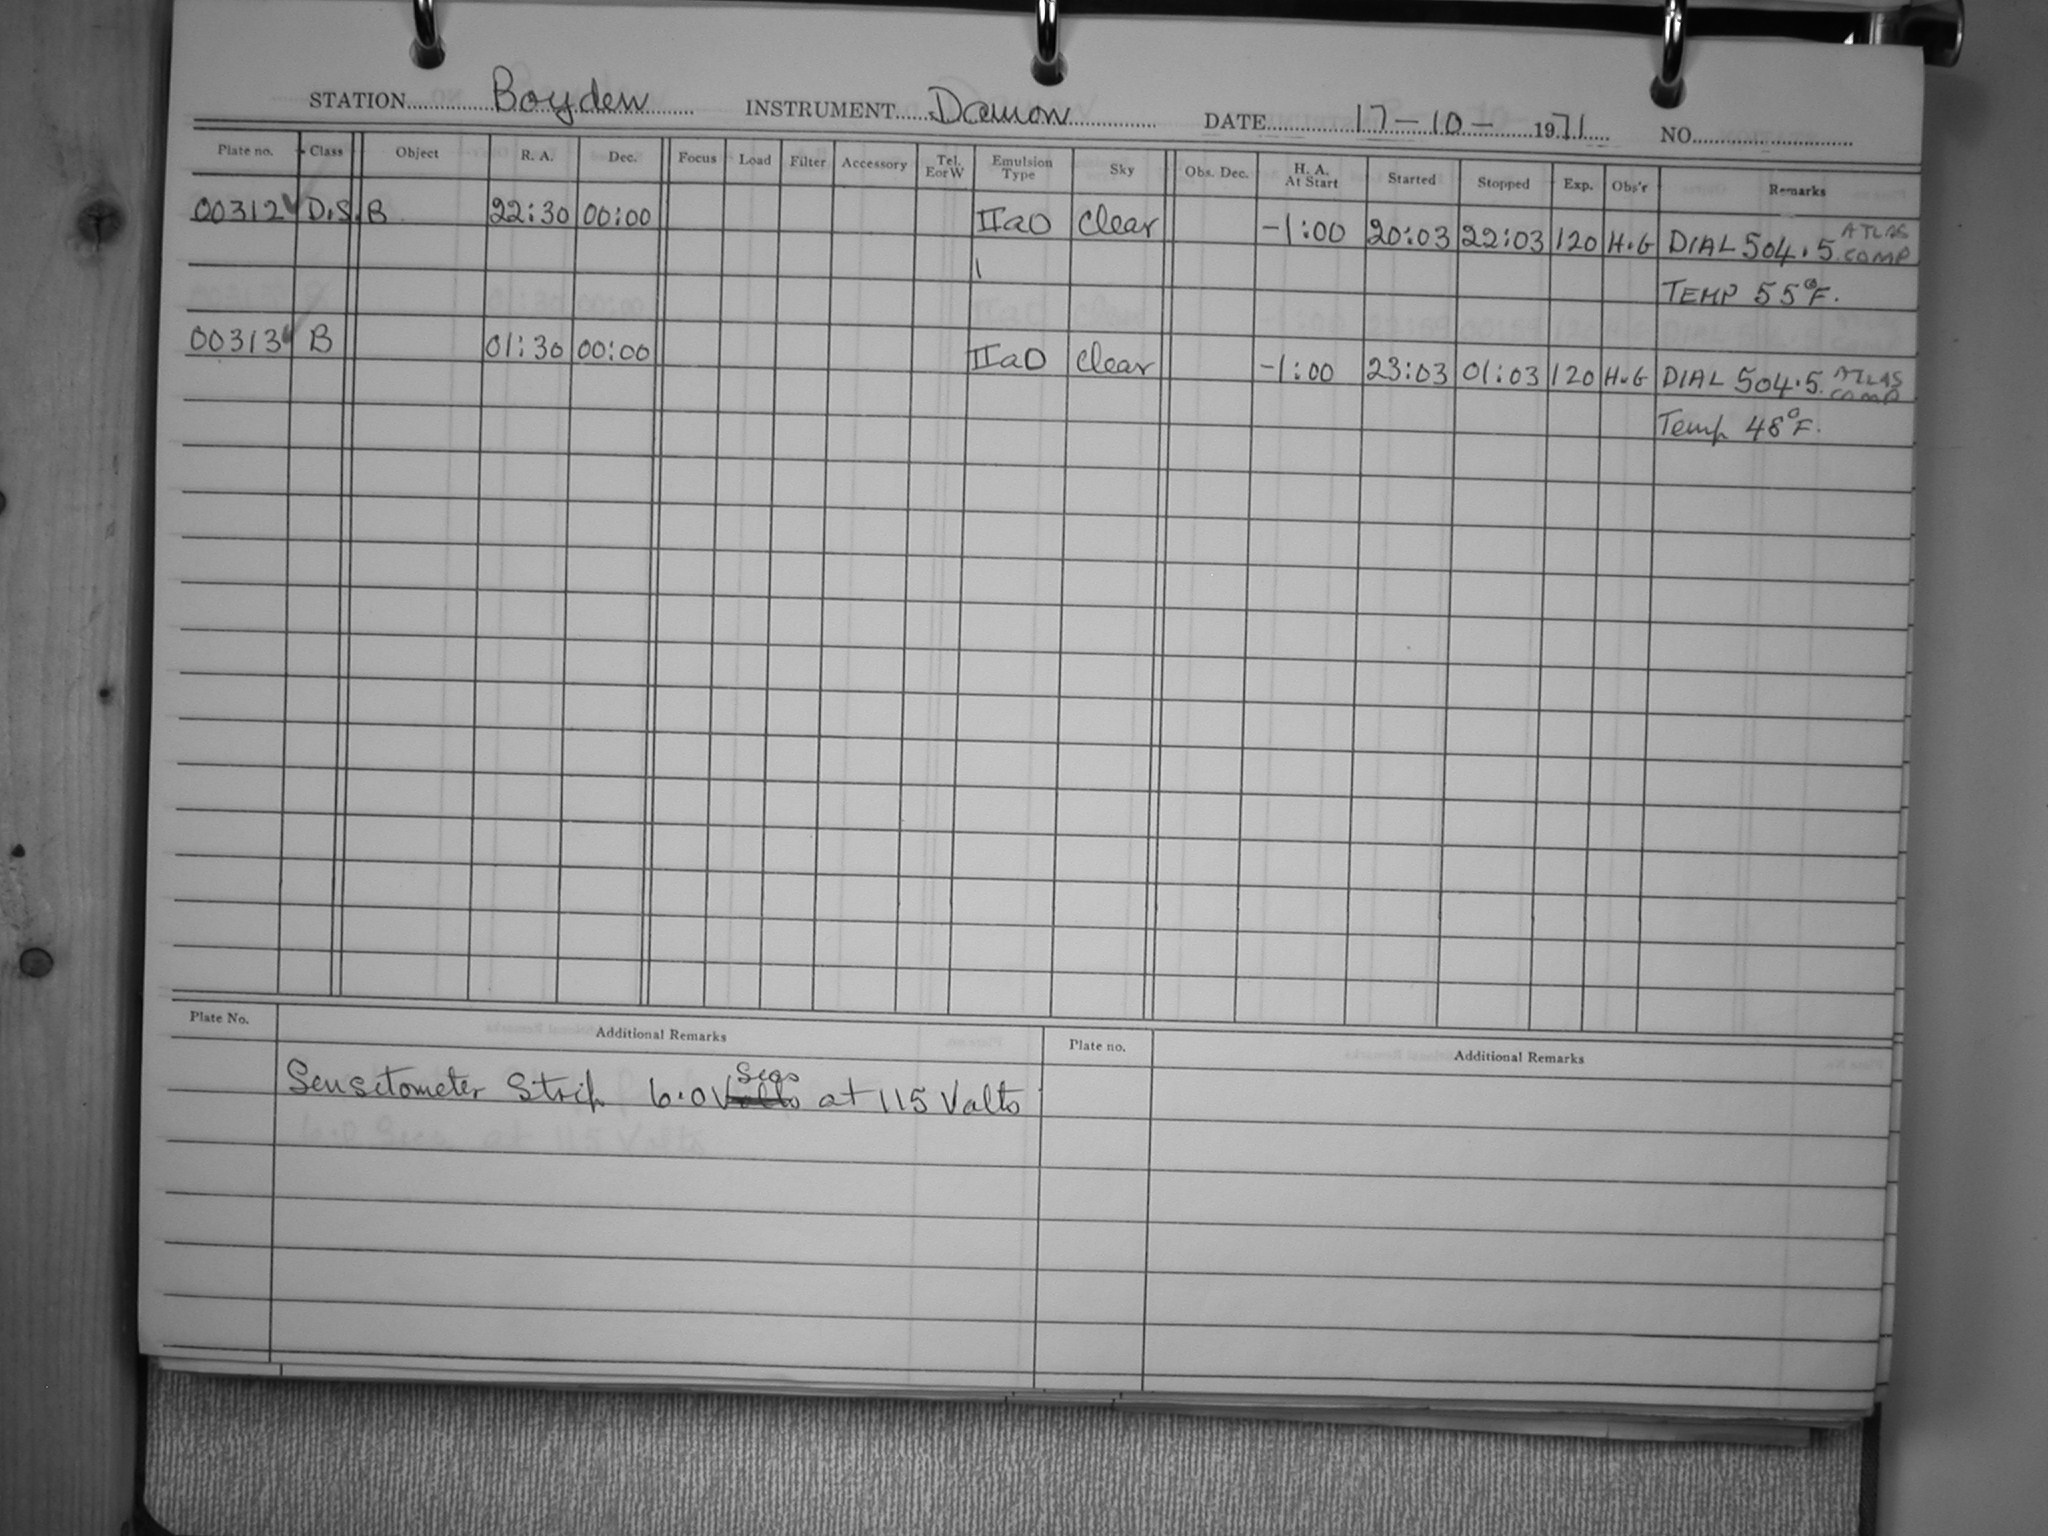 STATION Boyden INSTRUMENT Damon DATE 17-10-1971 NO.
Plate no. Class Object R. A. Dec. Focus Load Filter Accessory Tel. E or W Emulsion Type Sky Obs. Dec. H. A. At Start Started Stopped Exp. Obs'r Remarks
00312 D.S. B 22:30 00:00 IIaO Clear -1:00 20:03 22:03 120 H.G DIAL 504.5 ATLAS COMP
TEMP 55°F.
00313 B 01:30 00:00 IIaO Clear -1:00 23:03 01:03 120 H.G DIAL 504.5 ATLAS COMP
Temp 48°F.
Plate No. Additional Remarks Plate no. Additional Remarks
Sensetometer Strip 6.0 Volts Secs at 115 Volts